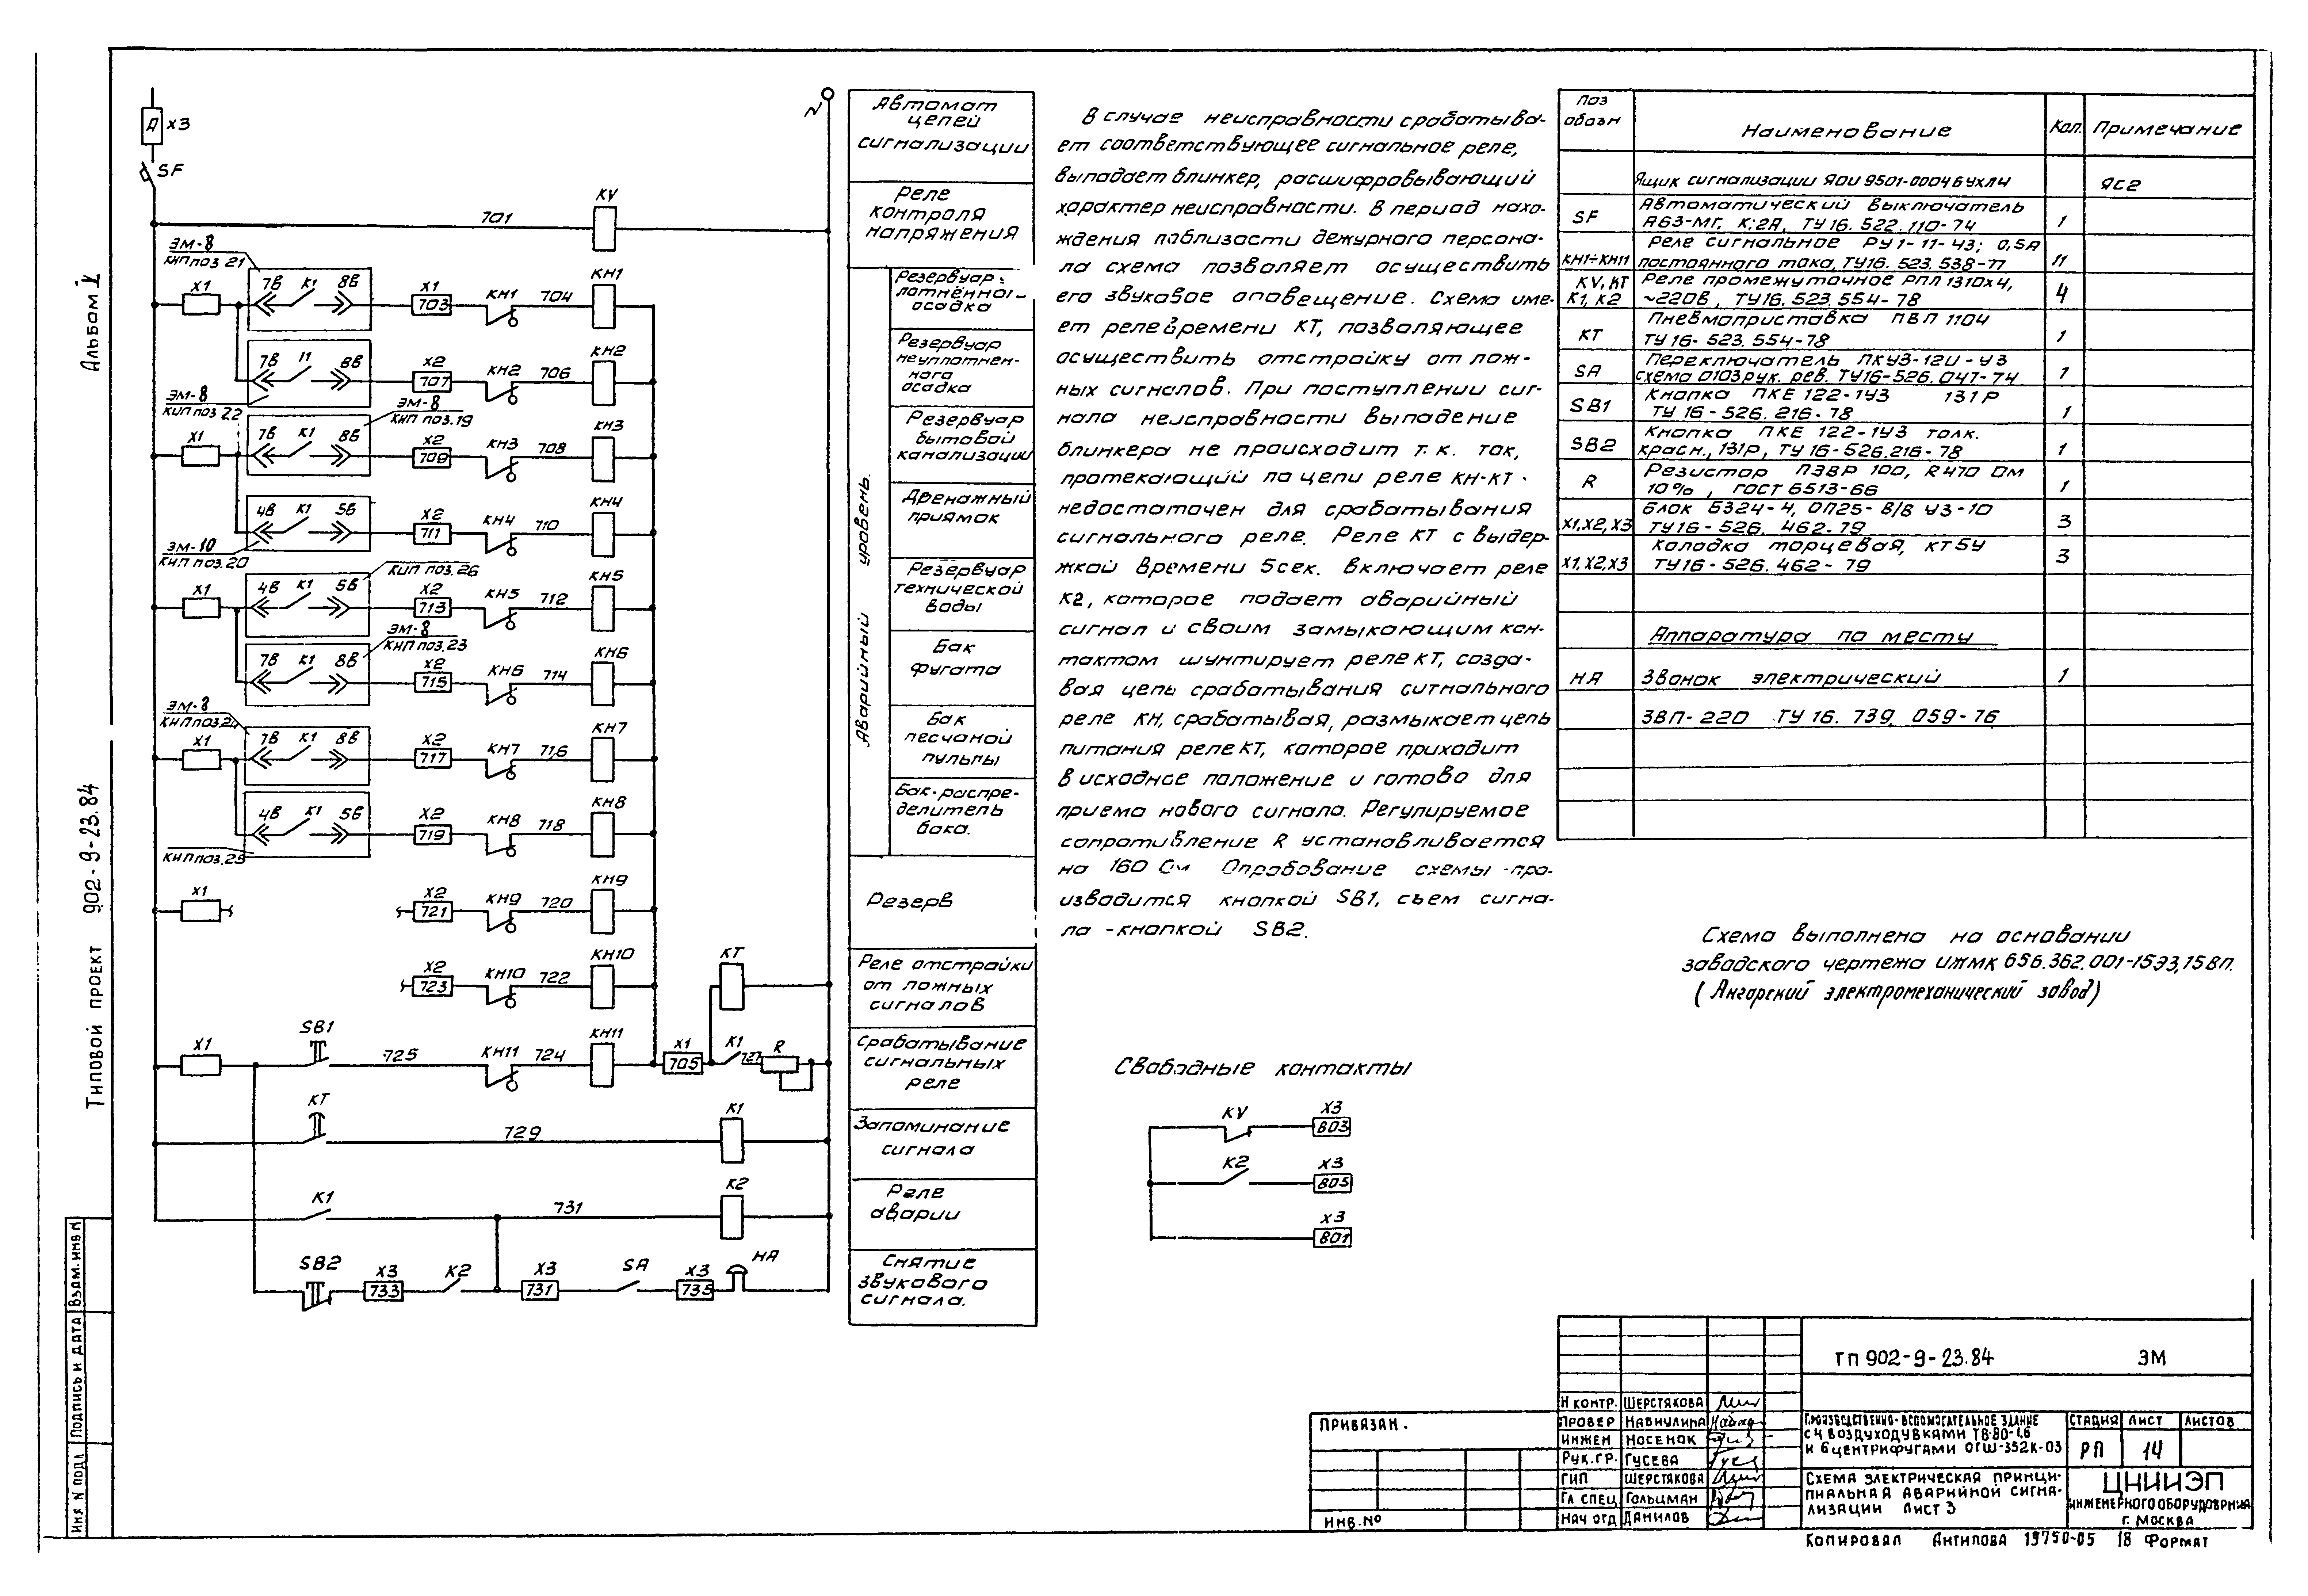 Альбом V
Типовой проект 902-9-23.84
Инв N подл
Подпись и дата
Взам. инв N
А X3
SF
N
701 KV
ЭМ-8
КИП поз 21
X1 7В К1 8Б X1 703 КН1 704 КН1
7В 11 8В X2 707 КН2 706 КН2
ЭМ-8
КИП поз 22
ЭМ-8
КИП поз.19
X1 7В К1 8Б X2 709 КН3 708 КН3
4В К1 5Б X2 711 КН4 710 КН4
ЭМ-10
КИП поз.20
КИП поз.26
X1 4В К1 5В X2 713 КН5 712 КН5
ЭМ-8
КИП поз.23
7В К1 8В X2 715 КН6 714 КН6
ЭМ-8
КИП поз.24
X1 7В К1 8В X2 717 КН7 716 КН7
4В К1 5Б X2 719 КН8 718 КН8
КИП поз.25
X1 X2 721 КН9 720 КН9
X2 723 КН10 722 КН10 КТ
X1 SB1 725 КН11 724 КН11 X1 705 К1 727 R
КТ 729 К1
К1 731 К2
SB2 X3 733 К2 X3 731 SA X3 735 НА
Автомат
цепей
сигнализации
Реле
контроля
напряжения
Аварийный уровень.
Резервуар
уплотнённого
осадка
Резервуар
неуплотнен-
ного
осадка
Резервуар
бытовой
канализации
Дренажный
приямок
Резервуар
технической
воды
Бак
фугата
Бак
песчаной
пульпы
Бак-распре-
делитель
бака.
Резерв
Реле отстройки
от ложных
сигналов
Срабатывание
сигнальных
реле
Запоминание
сигнала
Реле
аварии
Снятие
звукового
сигнала.
В случае неисправности срабатыва-
ет соответствующее сигнальное реле,
выпадает блинкер, расшифровывающий
характер неисправности. В период нахо-
ждения поблизости дежурного персона-
ла схема позволяет осуществить
его звуковое оповещение. Схема име-
ет реле времени КТ, позволяющее
осуществить отстройку от лож-
ных сигналов. При поступлении сиг-
нала неисправности выпадение
блинкера не происходит т.к. ток,
протекающий по цепи реле КН-КТ
недостаточен для срабатывания
сигнального реле. Реле КТ с выдер-
жкой времени 5сек. включает реле
К2, которое подает аварийный
сигнал и своим замыкающим кон-
тактом шунтирует реле КТ, созда-
вая цепь срабатывания сигнального
реле КН, срабатывая, размыкает цепь
питания реле КТ, которое приходит
в исходное положение и готово для
приема нового сигнала. Регулируемое
сопротивление R устанавливается
на 160 Ом Опробование схемы про-
изводится кнопкой SB1, съем сигна-
ла - кнопкой SB2.
Свободные контакты
KV X3 803
К2 X3 805
X3 801
Поз обозн Наименование Кол. Примечание
Ящик сигнализации ЯОИ 9501-0004 БУХЛ4 ЯС2
SF Автоматический выключатель
А63-МГ, К;2А, ТУ 16. 522. 110-74 1
Реле сигнальное РУ1-11-43; 0,5А
КН1÷КН11 постоянного тока, ТУ16. 523. 538-77 11
KV, КТ Реле промежуточное РПЛ 1310х4,
К1, К2 ~220В, ТУ16. 523. 554-78 4
КТ Пневмоприставка ПВП 1104
ТУ 16-523. 554-78 1
SA Переключатель ПКУ3-12И-У3
схема 0103рук. рев. ТУ16-526. 047-74 1
SB1 Кнопка ПКЕ 122-1У3 131Р
ТУ 16-526. 216-78 1
SB2 Кнопка ПКЕ 122-1У3 толк.
красн., 131Р, ТУ 16-526.216-78 1
R Резистор ПЭВР 100, R 470 Ом
10%, ГОСТ 6513-66 1
X1,X2,X3 Блок Б324-4, ОП25-В/В У3-10
ТУ16-526. 462-79 3
X1,X2,X3 Колодка торцевая, КТ5У
ТУ16-526. 462-79 3
Аппаратура по месту
НА Звонок электрический 1
ЗВП-220 ТУ 16. 739. 059-76
Схема выполнена на основании
заводского чертежа ИЖМК 656.362.001-15Э3,15ВП.
(Ангарский электромеханический завод)
Привязан.
Инв.№
ТП 902-9-23.84 ЭМ
Н контр. Шерстякова
Провер Навиулина
Инжен Носенок
Рук.гр. Гусева
ГИП Шерстякова
Гл спец Гольцман
Нач отд Данилов
Производственно-вспомогательное здание
с 4 воздуходувками ТВ-80-1,6
и 6 центрифугами ОГШ-352К-03
Стадия Лист Листов
РП 14
Схема электрическая принци-
пиальная аварийной сигна-
лизации Лист 3
ЦНИИЭП
инженерного оборудования
г. Москва
Копировал Антипова 19750-05 18 Формат